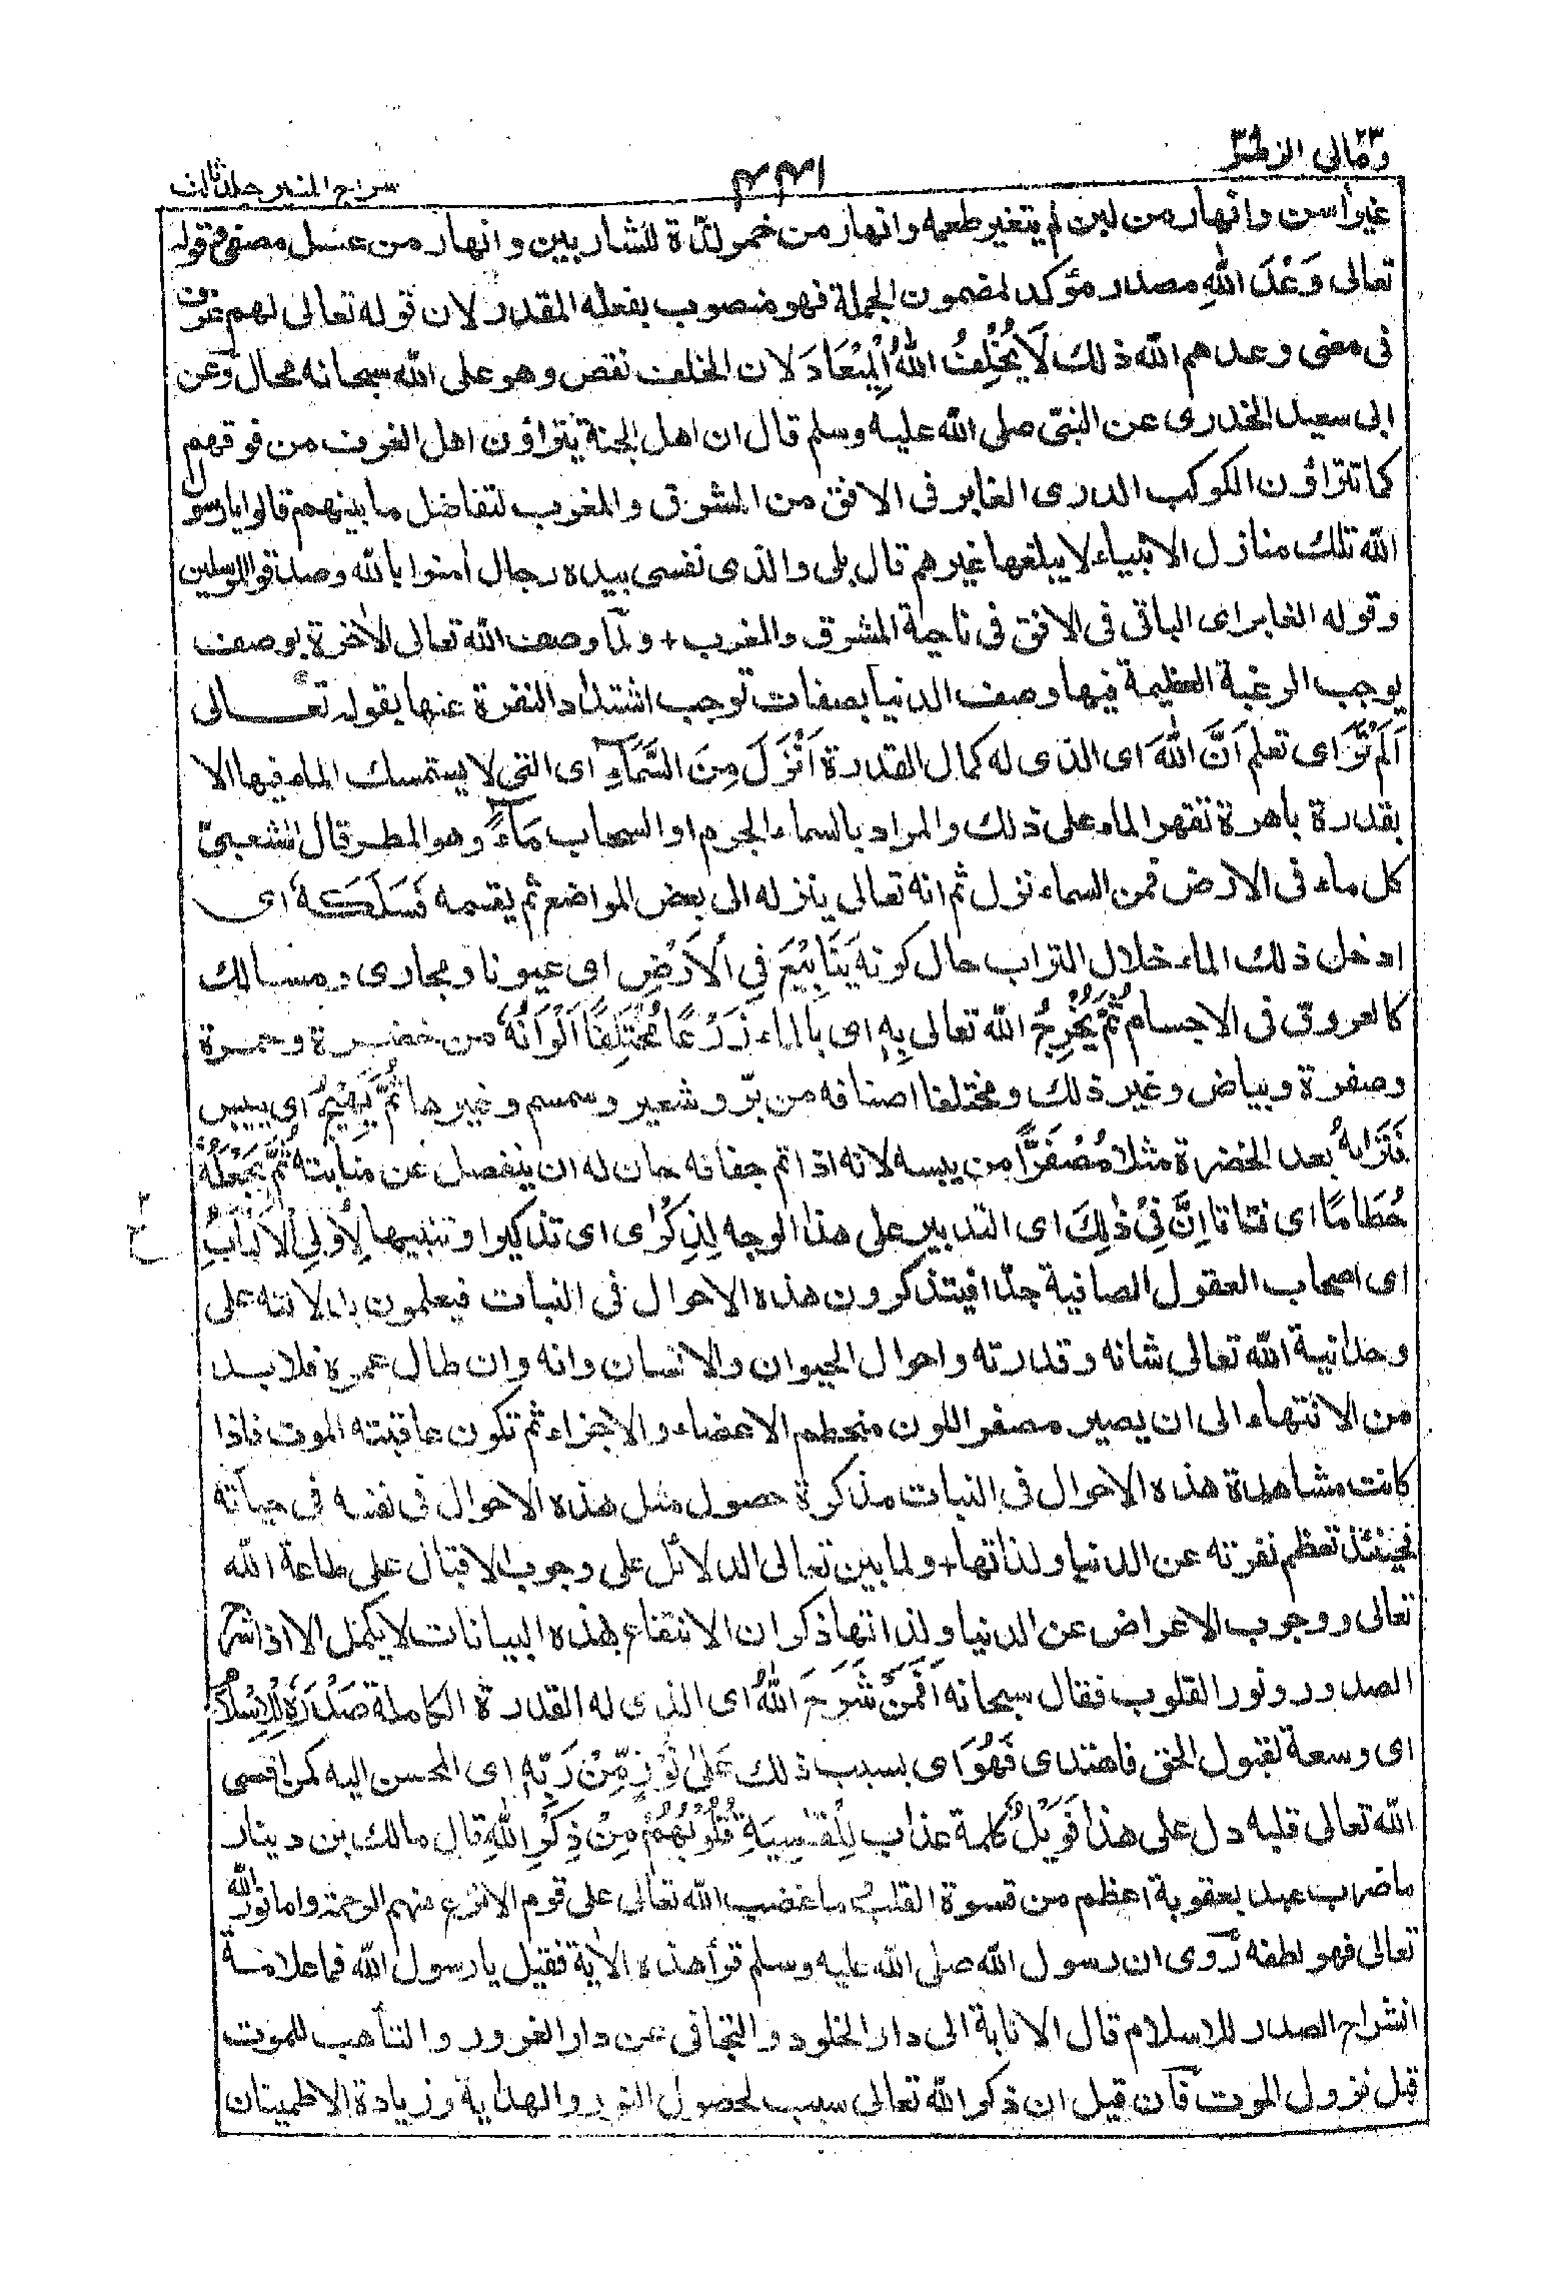 ومالى ٢٣ الزمر ٣٩
٤٤١
سراج المنير جلد ثالث
غير اٰسن وانهار من لبن لم يتغير طعمه وانهار من خمر لذة للشاربين وانهار من عسل مصفى وقوله
تعالى وَعْدَ اللهِ مصدر مؤكد لمضمون الجملة فهو منصوب بفعله المقدر لان قوله تعالى لهم غرف
فى معنى وعدهم الله ذلك لَا يُخْلِفُ اللهُ الْمِيْعَادَ لان الخلف نقص وهو على الله سبحانه محال وعن
ابى سعيد الخدرى عن النبىّ صلى الله عليه وسلم قال ان اهل الجنة يتراؤن اهل الغرف من فوقهم
كما تتراؤن الكوكب الدرى الغابر فى الافق من المشرق والمغرب لتفاضل ما بينهم قالوا يا رسول
الله تلك منازل الانبياء لا يبلغها غيرهم قال بلى والذى نفسى بيده رجال اٰمنوا بالله وصدقوا المرسلين
وقوله الغابر اى الباقى فى الافق فى ناحية المشرق والمغرب + ولمّا وصف الله تعالى الاٰخرة بوصف
يوجب الرغبة العظيمة فيها وصف الدنيا بصفات توجب اشتداد النفرة عنها بقوله تعالى
اَلَمْ تَرَ اى تعلم اَنَّ اللهَ اى الذى له كمال القدرة اَنْزَلَ مِنَ السَّمَآءِ اى التى لا يستمسك الماء فيها الا
بقدرة باهرة تقهر الماء على ذلك والمراد بالسماء الجرم او السحاب مَآءً وهو المطر قال الشعبىّ
كل ماء فى الارض فمن السماء نزل ثم انه تعالى ينزله الى بعض المواضع ثم يقسمه فَسَلَكَهٗ اى
ادخل ذلك الماء خلال التراب حال كونه يَنَابِيْعَ فِى الْاَرْضِ اى عيونا ومجارى ومسالك
كالعروق فى الاجسام ثُمَّ يُخْرِجُ الله تعالى بِهٖ اى بالماء زَرْعًا مُّخْتَلِفًا اَلْوَانُهٗ من خضرة وحمرة
وصفرة وبياض وغير ذلك ومختلفا اصنافه من برّ وشعير وسمسم وغيرها ثُمَّ يَهِيْجُ اى ييبس
فَتَرَاهُ بعد الخضرة مثلا مُصْفَرًّا من يبسه لانه اذا تم جفافه حان له ان ينفصل عن منابته ثُمَّ يَجْعَلُهٗ
حُطَامًا اى فتاتا اِنَّ فِىْ ذٰلِكَ اى التدبير على هذا الوجه لَذِكْرٰى اى تذكيرا وتنبيها لِاُولِى الْاَلْبَابِ
اى اصحاب العقول الصافية جدّا فيتذكرون هذه الاحوال فى النبات فيعلمون بدلالته على
وحدانية الله تعالى شانه وقدرته واحوال الحيوان والانسان وانه وان طال عمره فلابد
من الانتهاء الى ان يصير مصفر اللون منحطم الاعضاء والاجزاء ثم تكون عاقبته الموت فاذا
كانت مشاهدة هذه الاحوال فى النبات مذكرة حصول مثل هذه الاحوال فى نفسه فى حياته
فحينئذ تعظم نفرته عن الدنيا ولذاتها + ولما بين تعالى الدلائل على وجوب الاقبال على طاعة الله
تعالى ووجوب الاعراض عن الدنيا ولذاتها ذكر ان الانتفاع بهذه البيانات لا يكمل الا اذا شرح
الصدور ونور القلوب فقال سبحانه اَفَمَنْ شَرَحَ اللهُ اى الذى له القدرة الكاملة صَدْرَهٗ لِلْاِسْلَامِ
اى وسعة لقبول الحق فاهتدى فَهُوَ اى بسبب ذلك عَلٰى نُوْرٍ مِّنْ رَبِّهٖ اى المحسن اليه كمن اقسى
الله تعالى قلبه دل على هذا فَوَيْلٌ كلمة عذاب لِلْقٰسِيَةِ قُلُوْبُهُمْ مِنْ ذِكْرِ اللهِ قال مالك بن دينار
ما ضرب عبد بعقوبة اعظم من قسوة القلب وما غضب الله تعالى على قوم الا نزع منهم الرحمة واما نور الله
تعالى فهو لطفه روى ان رسول الله صلى الله عليه وسلم قرأ هذه الاٰية فقيل يا رسول الله فما علامة
انشراح الصدر للاسلام قال الانابة الى دار الخلود والتجافى عن دار الغرور والتأهب للموت
قبل نزول الموت فان قيل ان ذكر الله تعالى سبب لحصول النور والهداية وزيادة الاطمينان